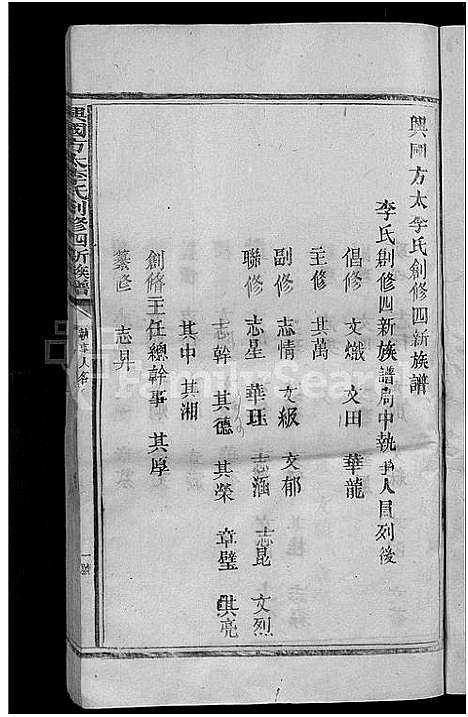 興國方太李氏創修四新族譜
李氏創修四新族譜局中執事人員列後
倡修 文熾 文田 華龍
主修 其萬
副修 志情 文級 文郁
聯修 志星 華珏 志涵 志昆 文烈
志幹 其德 其榮 章璧 其亮
其中 其湘
創脩主任總幹事 其厚
纂修 志昇
興國方太李氏創修四新族譜
執事人名
一
FamilySearch